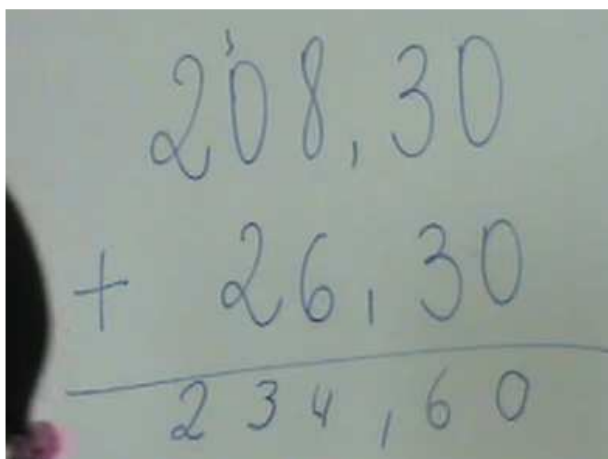 208,30
+ 26,30
234,60